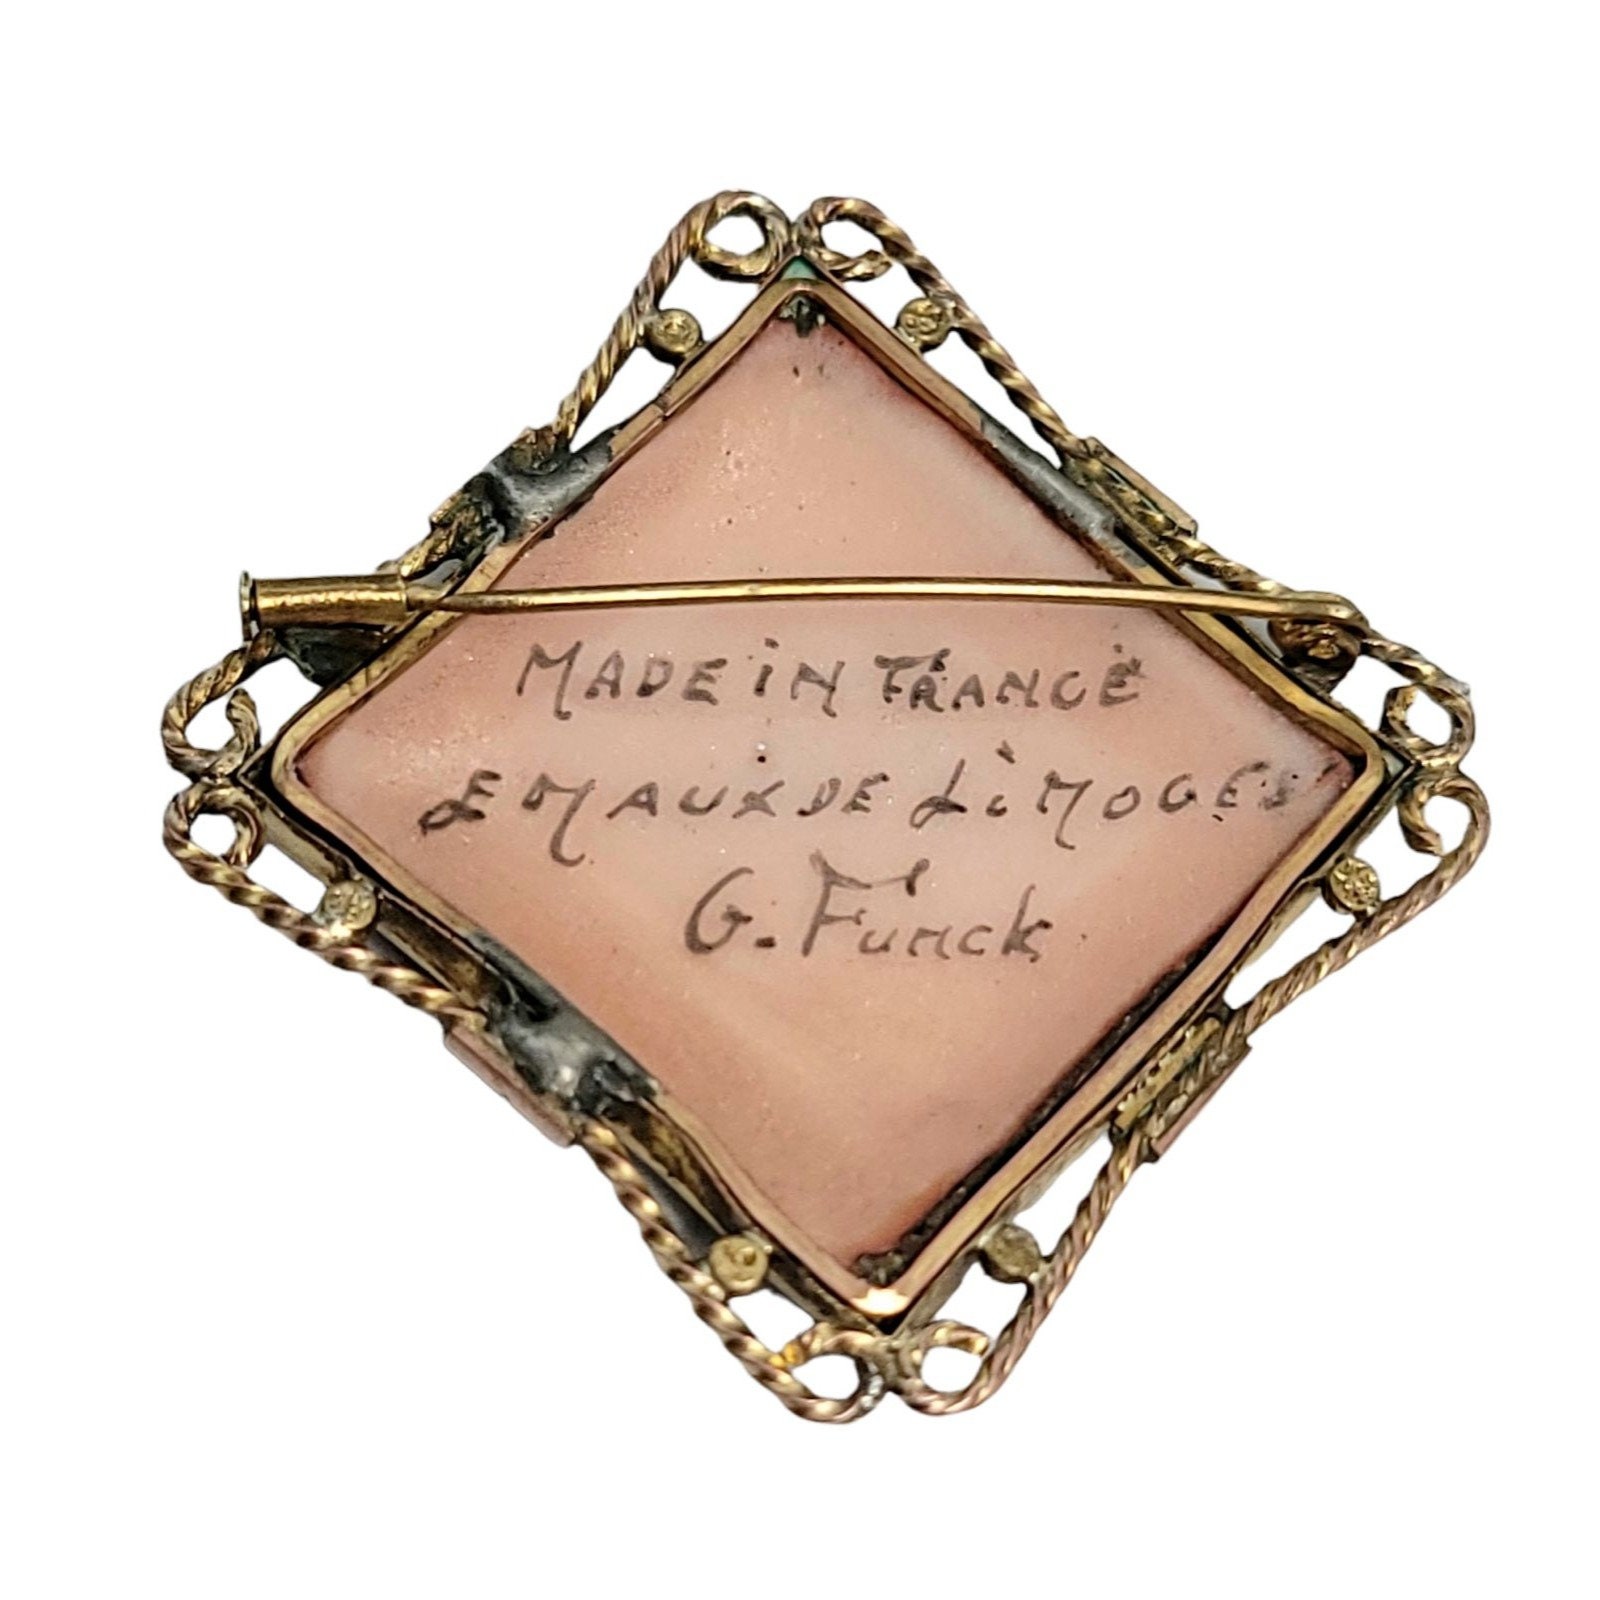 MADE iN FRANCE
EMAUX DE LiMOGES
G. Funck